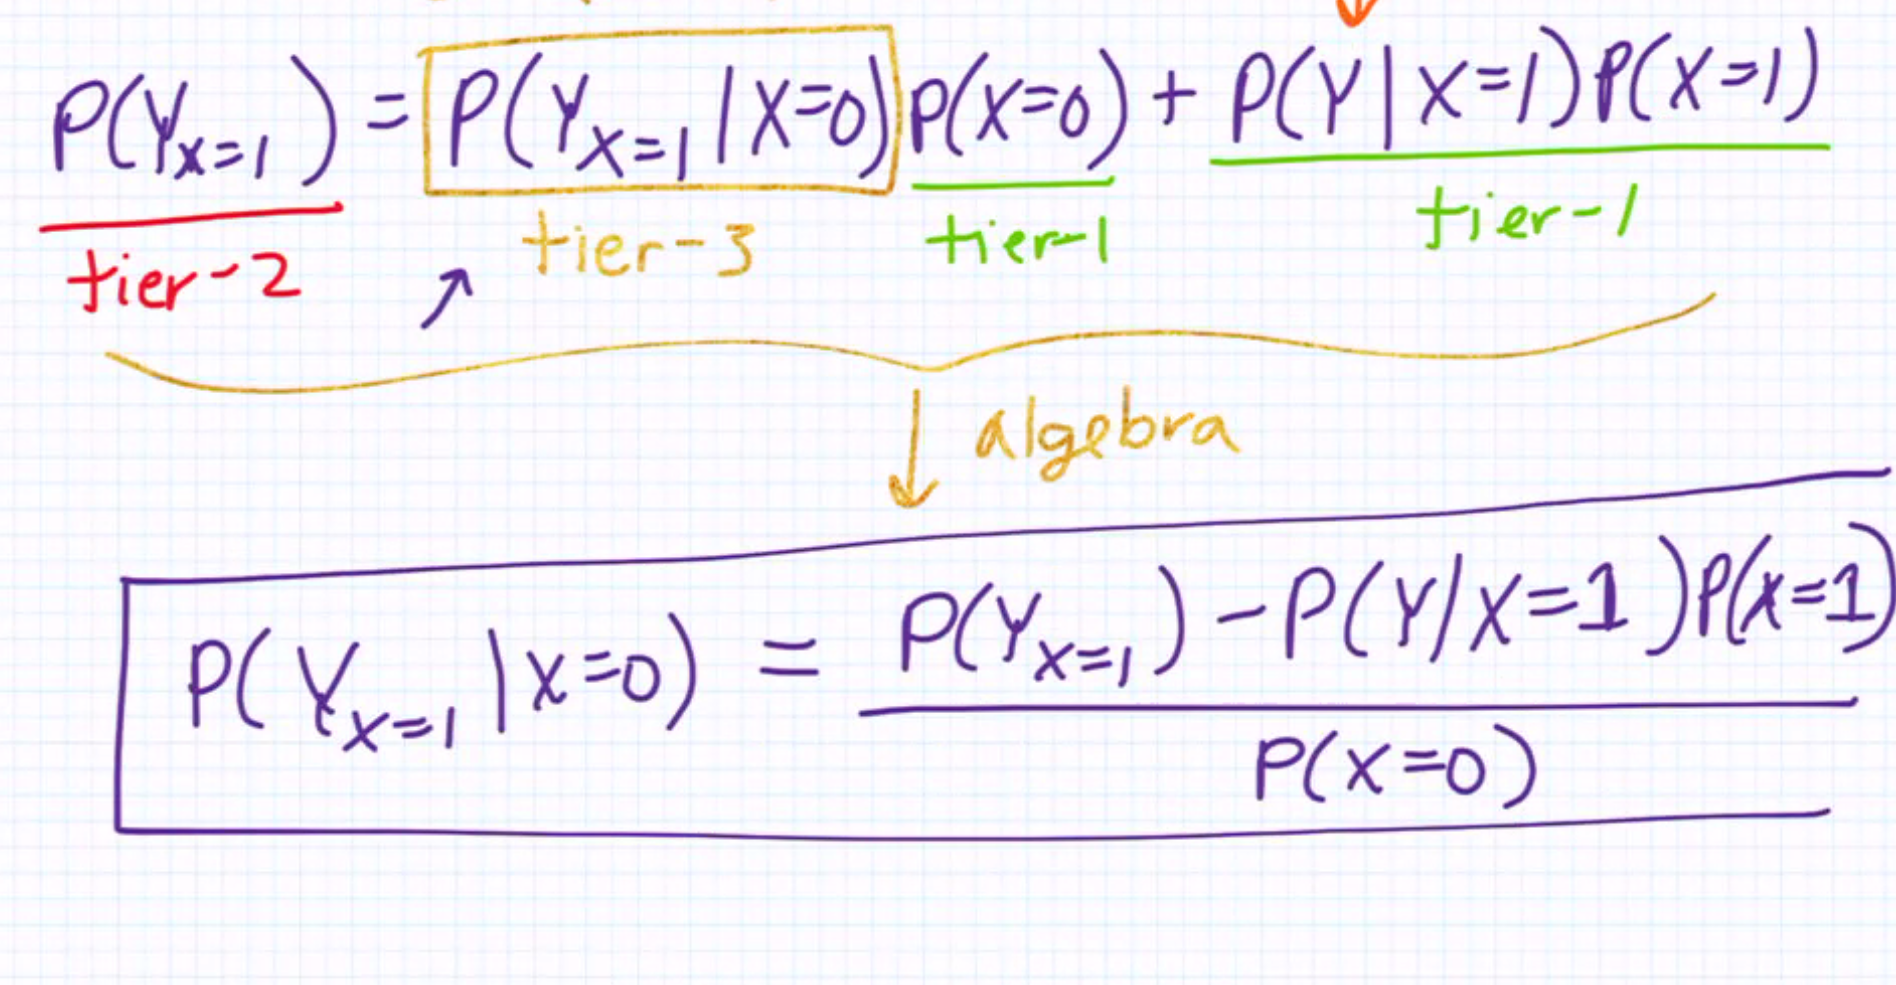 P(Y_{X=1}) = P(Y_{X=1} | X=0) P(X=0) + P(Y | X=1) P(X=1)
tier-2 tier-3 tier-1 tier-1
algebra
P(Y_{X=1} | X=0) = \frac{P(Y_{X=1}) - P(Y | X=1) P(X=1)}{P(X=0)}